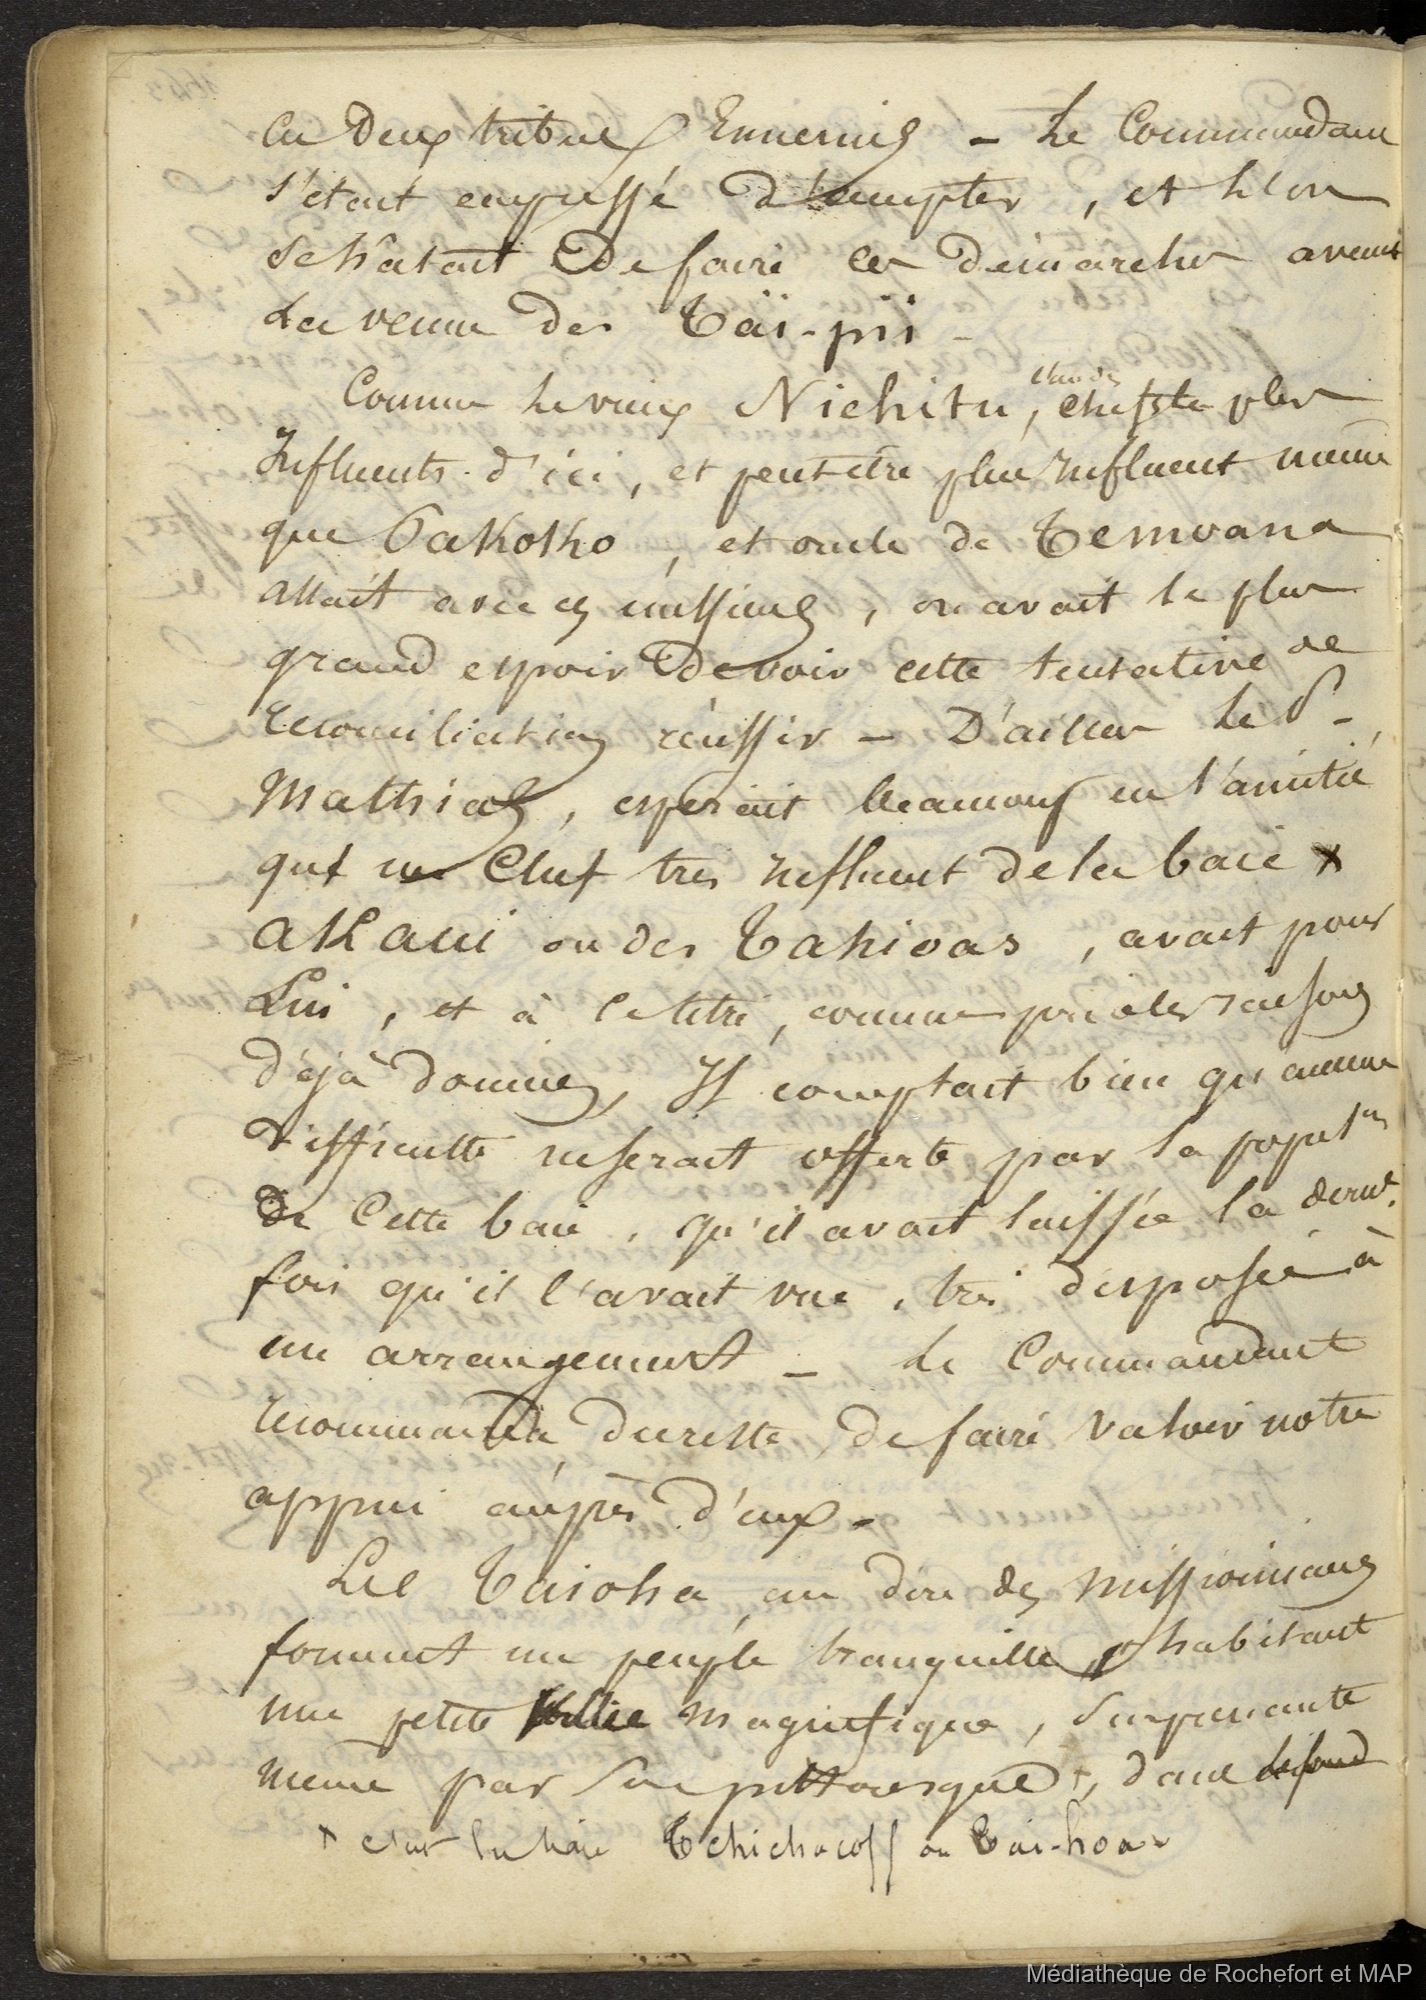 ces Deux tribus Ennemies – Le Commandant
s'était empressé d'accepter, et L'on
se hâtait De faire ces démarches avant
La venue des Taï-pii –
Comme Le vieux Nichitu, l'un des chefs le plus
Influents d'ici, et peut-être plus Influent même
que Pakoko, et oncle de Temoana
allait avec ces missionn, on avait le plus
grand espoir De voir cette tentative de
reconciliation réussir – D'ailleurs Le P.
Mathias, esperait beaucoup en l'amitié
que un Chef très Influent de la baie x
aKani ou des Tahioas, avait pour
Lui, et à ce titre, comme par les raisons
déjà données, Il comptait bien qu'aucune
Difficulté ne serait offerte par la popul.on
De Cette baie, qu'il avait laissée la derne.
fois qu'il l'avait vue, très disposée à
un arrangement – Le Commandant
recommanda, du reste, de faire valoir notre
appui auprès d'eux –
Les Taioha, au dire des Missionnaires
forment un peuple tranquille, habitant
une petite vallée magnifique, surprenante
même par son pittoresque +, dans le fond
+ c'est la baie Tchichacoff ou Tai-hoas
Médiathèque de Rochefort et MAP